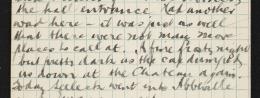 the hall entrance (at another
was here - it was just as well
that there were not many more
places to call at. A fine frosty night
but pretty dark as the car dumped
us down at the Chateau again.
Today Sellick went into Abbéville